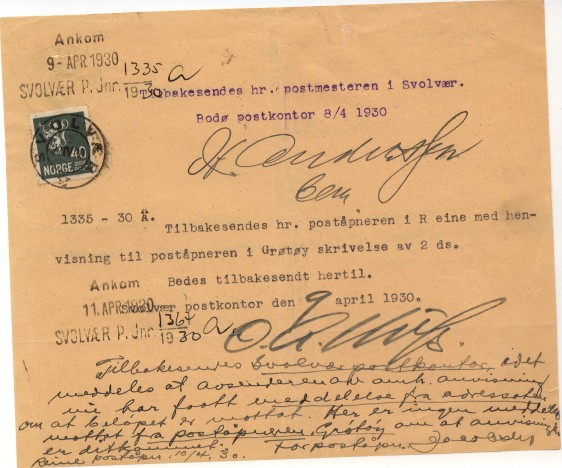 Ankom
9 - APR. 1930
SVOLVÆR P. Jnr. 1335 a
19 30
Tilbakesendes hr. postmesteren i Svolvær.
Bodø postkontor 8/4 1930
SVOLVÆ
40
NORGE
1335 - 30 Ä.
Tilbakesendes hr. poståpneren i R eine med hen-
visning til poståpneren i Grøtøy skrivelse av 2 ds.
Ankom
Bedes tilbakesendt hertil.
11. APR. 1930
Svolvær postkontor den 9 april 1930.
SVOLVÆR P. Jnr. 1364 a
19 30
Tilbakesendes Svolvær postkontor, idet
meddeles at avsenderen av omh. anvisning
nu har faatt meddelelse fra adressaten
om at beløpet er mottat. Her er ingen meddelelse
mottat fra poståpneren Grøtøy om at anvisningen
er
Reine poståpn. 10/4. 30. for poståpn.